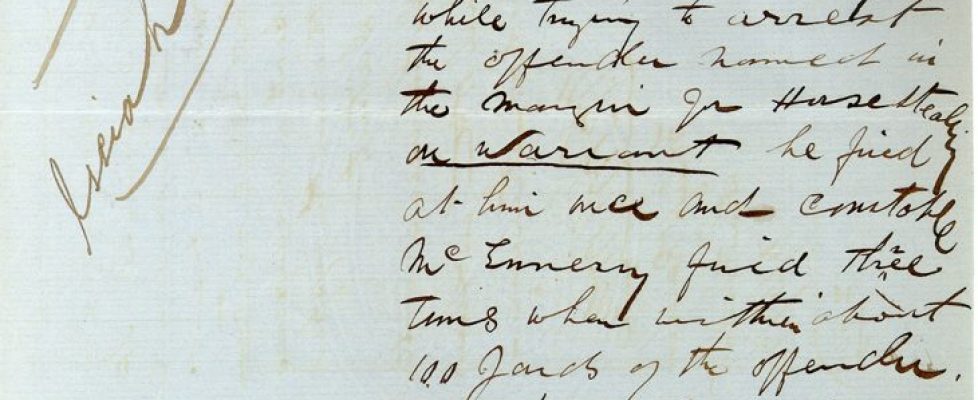 while trying to arrest
the offender named in
the margin for Horse stealing
on warrant he fired
at him once and constable
Mc Ennery fired three
times when within about
100 yards of the offender.